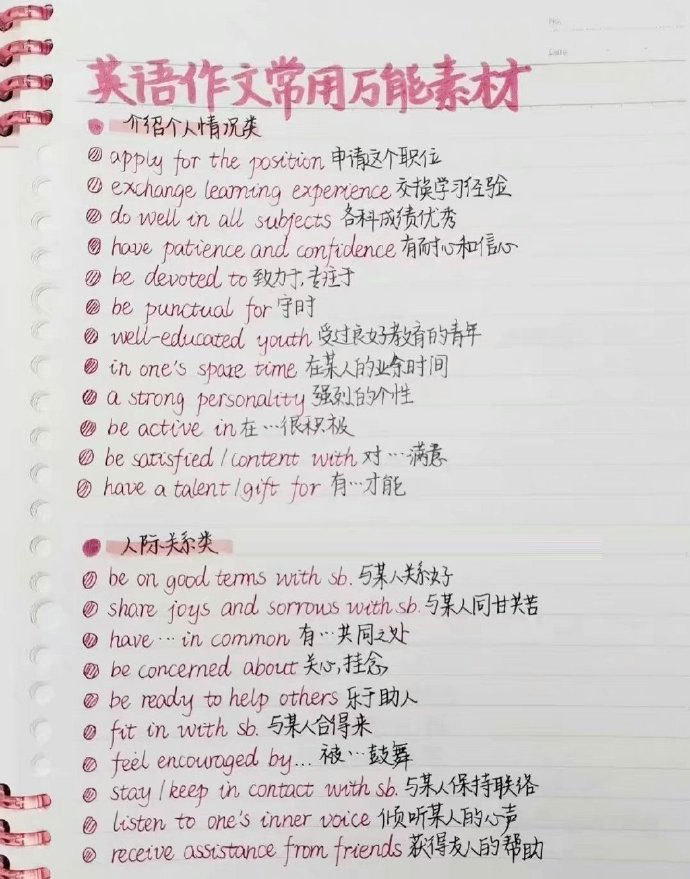 英语作文常用万能素材
介绍个人情况类
apply for the position 申请这个职位
exchange learning experience 交换学习经验
do well in all subjects 各科成绩优秀
have patience and confidence 有耐心和信心
be devoted to 致力于,专注于
be punctual for 守时
well-educated youth 受过良好教育的青年
in one's spare time 在某人的业余时间
a strong personality 强烈的个性
be active in 在…很积极
be satisfied/content with 对…满意
have a talent/gift for 有…才能
人际关系类
be on good terms with sb. 与某人关系好
share joys and sorrows with sb. 与某人同甘共苦
have … in common 有…共同之处
be concerned about 关心,挂念
be ready to help others 乐于助人
fit in with sb. 与某人合得来
feel encouraged by... 被…鼓舞
stay/keep in contact with sb. 与某人保持联络
listen to one's inner voice 倾听某人的心声
receive assistance from friends 获得友人的帮助